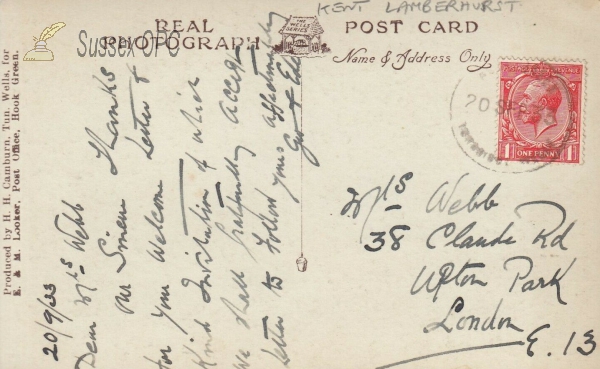 KENT LAMBERHURST
REAL PHOTOGRAPH
THE WELLS SERIES
POST CARD
Name & Address Only
SussexOPC
Produced by H. H. Camburn, Tun. Wells, for
E. & M. Looker, Post Office, Hook Green.
20/9/33
Dear Mrs Webb
Our Sincere Thanks
for your Welcome Letter &
Kind Invitation of which
We shall gratefully accept
Letter to follow yours affectionately
20 SP
1 ONE PENNY 1
Mrs Webb
38 Claude Rd
Upton Park
London
E. 13